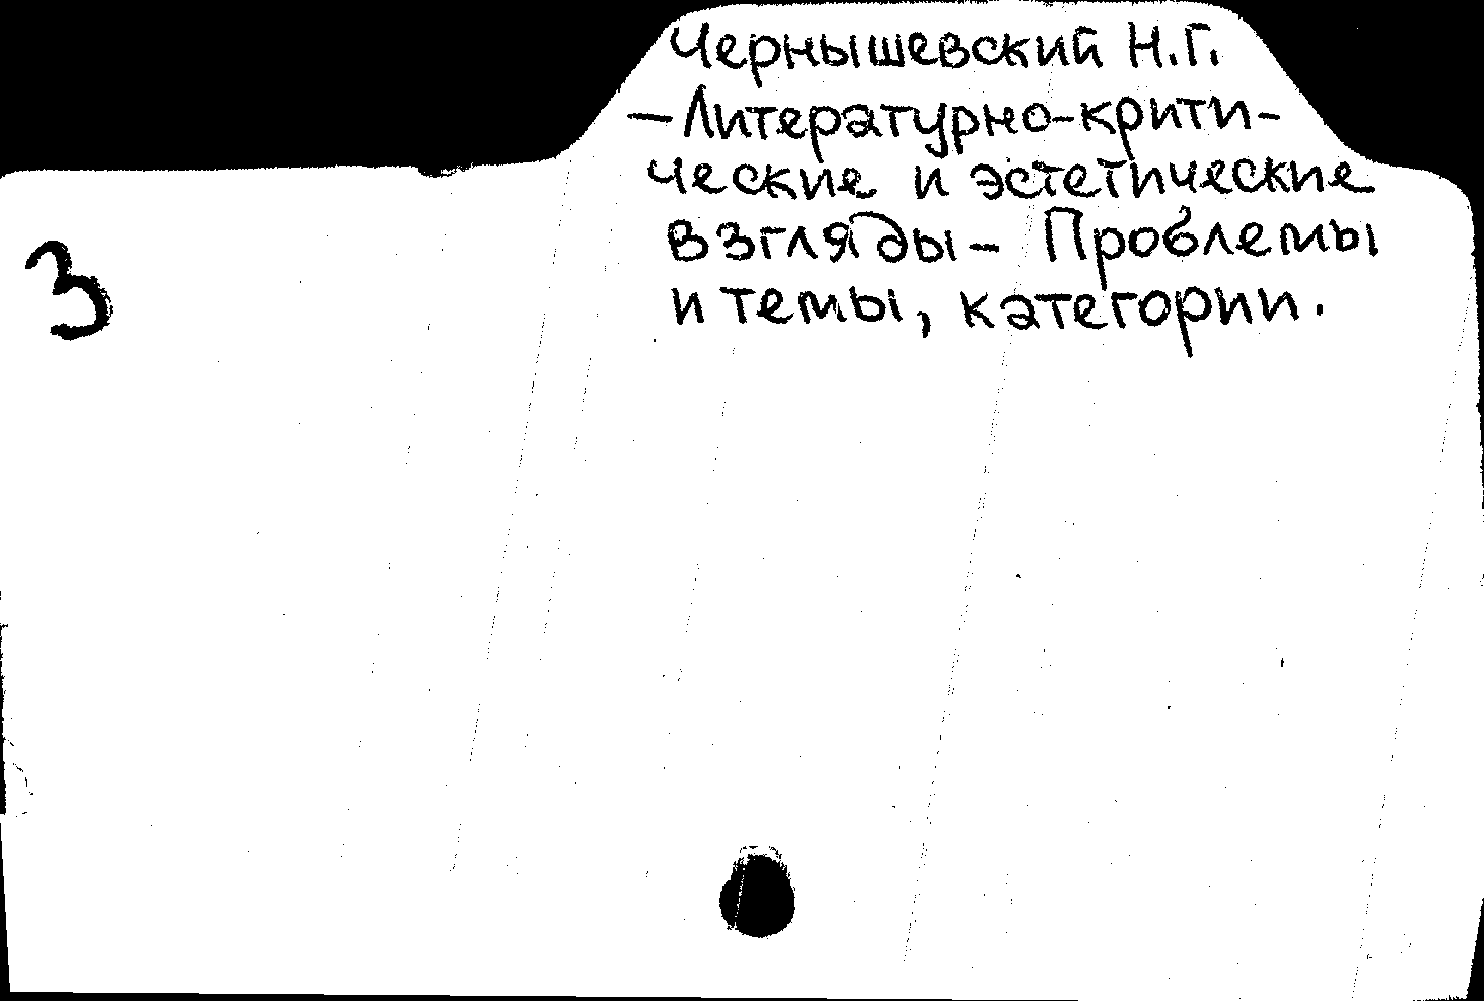 Чернышевский Н.Г.
— Литературно-крити-
ческие и эстетические
взгляды — Проблемы
и темы, категории.
3